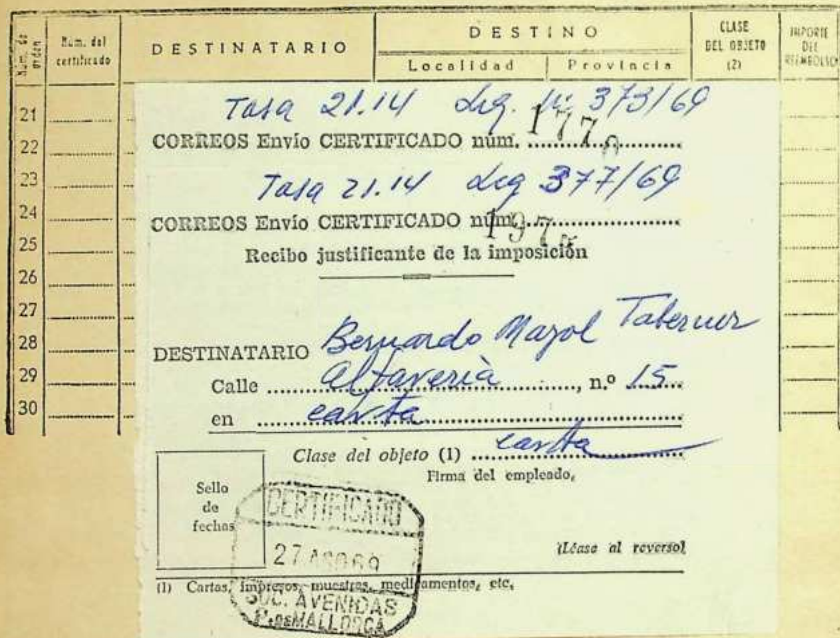 Núm. de orden Núm. del certificado DESTINATARIO DESTINO CLASE DEL OBJETO (2) IMPORTE DEL REEMBOLSO
Localidad Provincia
21
22
23
24
25
26
27
28
29
30
Tasa 21.14 Leg. nº 373/69
CORREOS Envío CERTIFICADO núm. 177
Tasa 21.14 Leg 377/69
CORREOS Envío CERTIFICADO núm. 197
Recibo justificante de la imposición
DESTINATARIO Bernardo Mayol Taberner
Calle Altavería, n.º 15
en carta
Clase del objeto (1) carta
Firma del empleado,
Sello de fechas
CERTIFICADO
27 AGO 69
SUC. AVENIDAS
P. DE MALLORCA
(Léase al reverso)
(1) Cartas, impresos, muestras, medicamentos, etc.